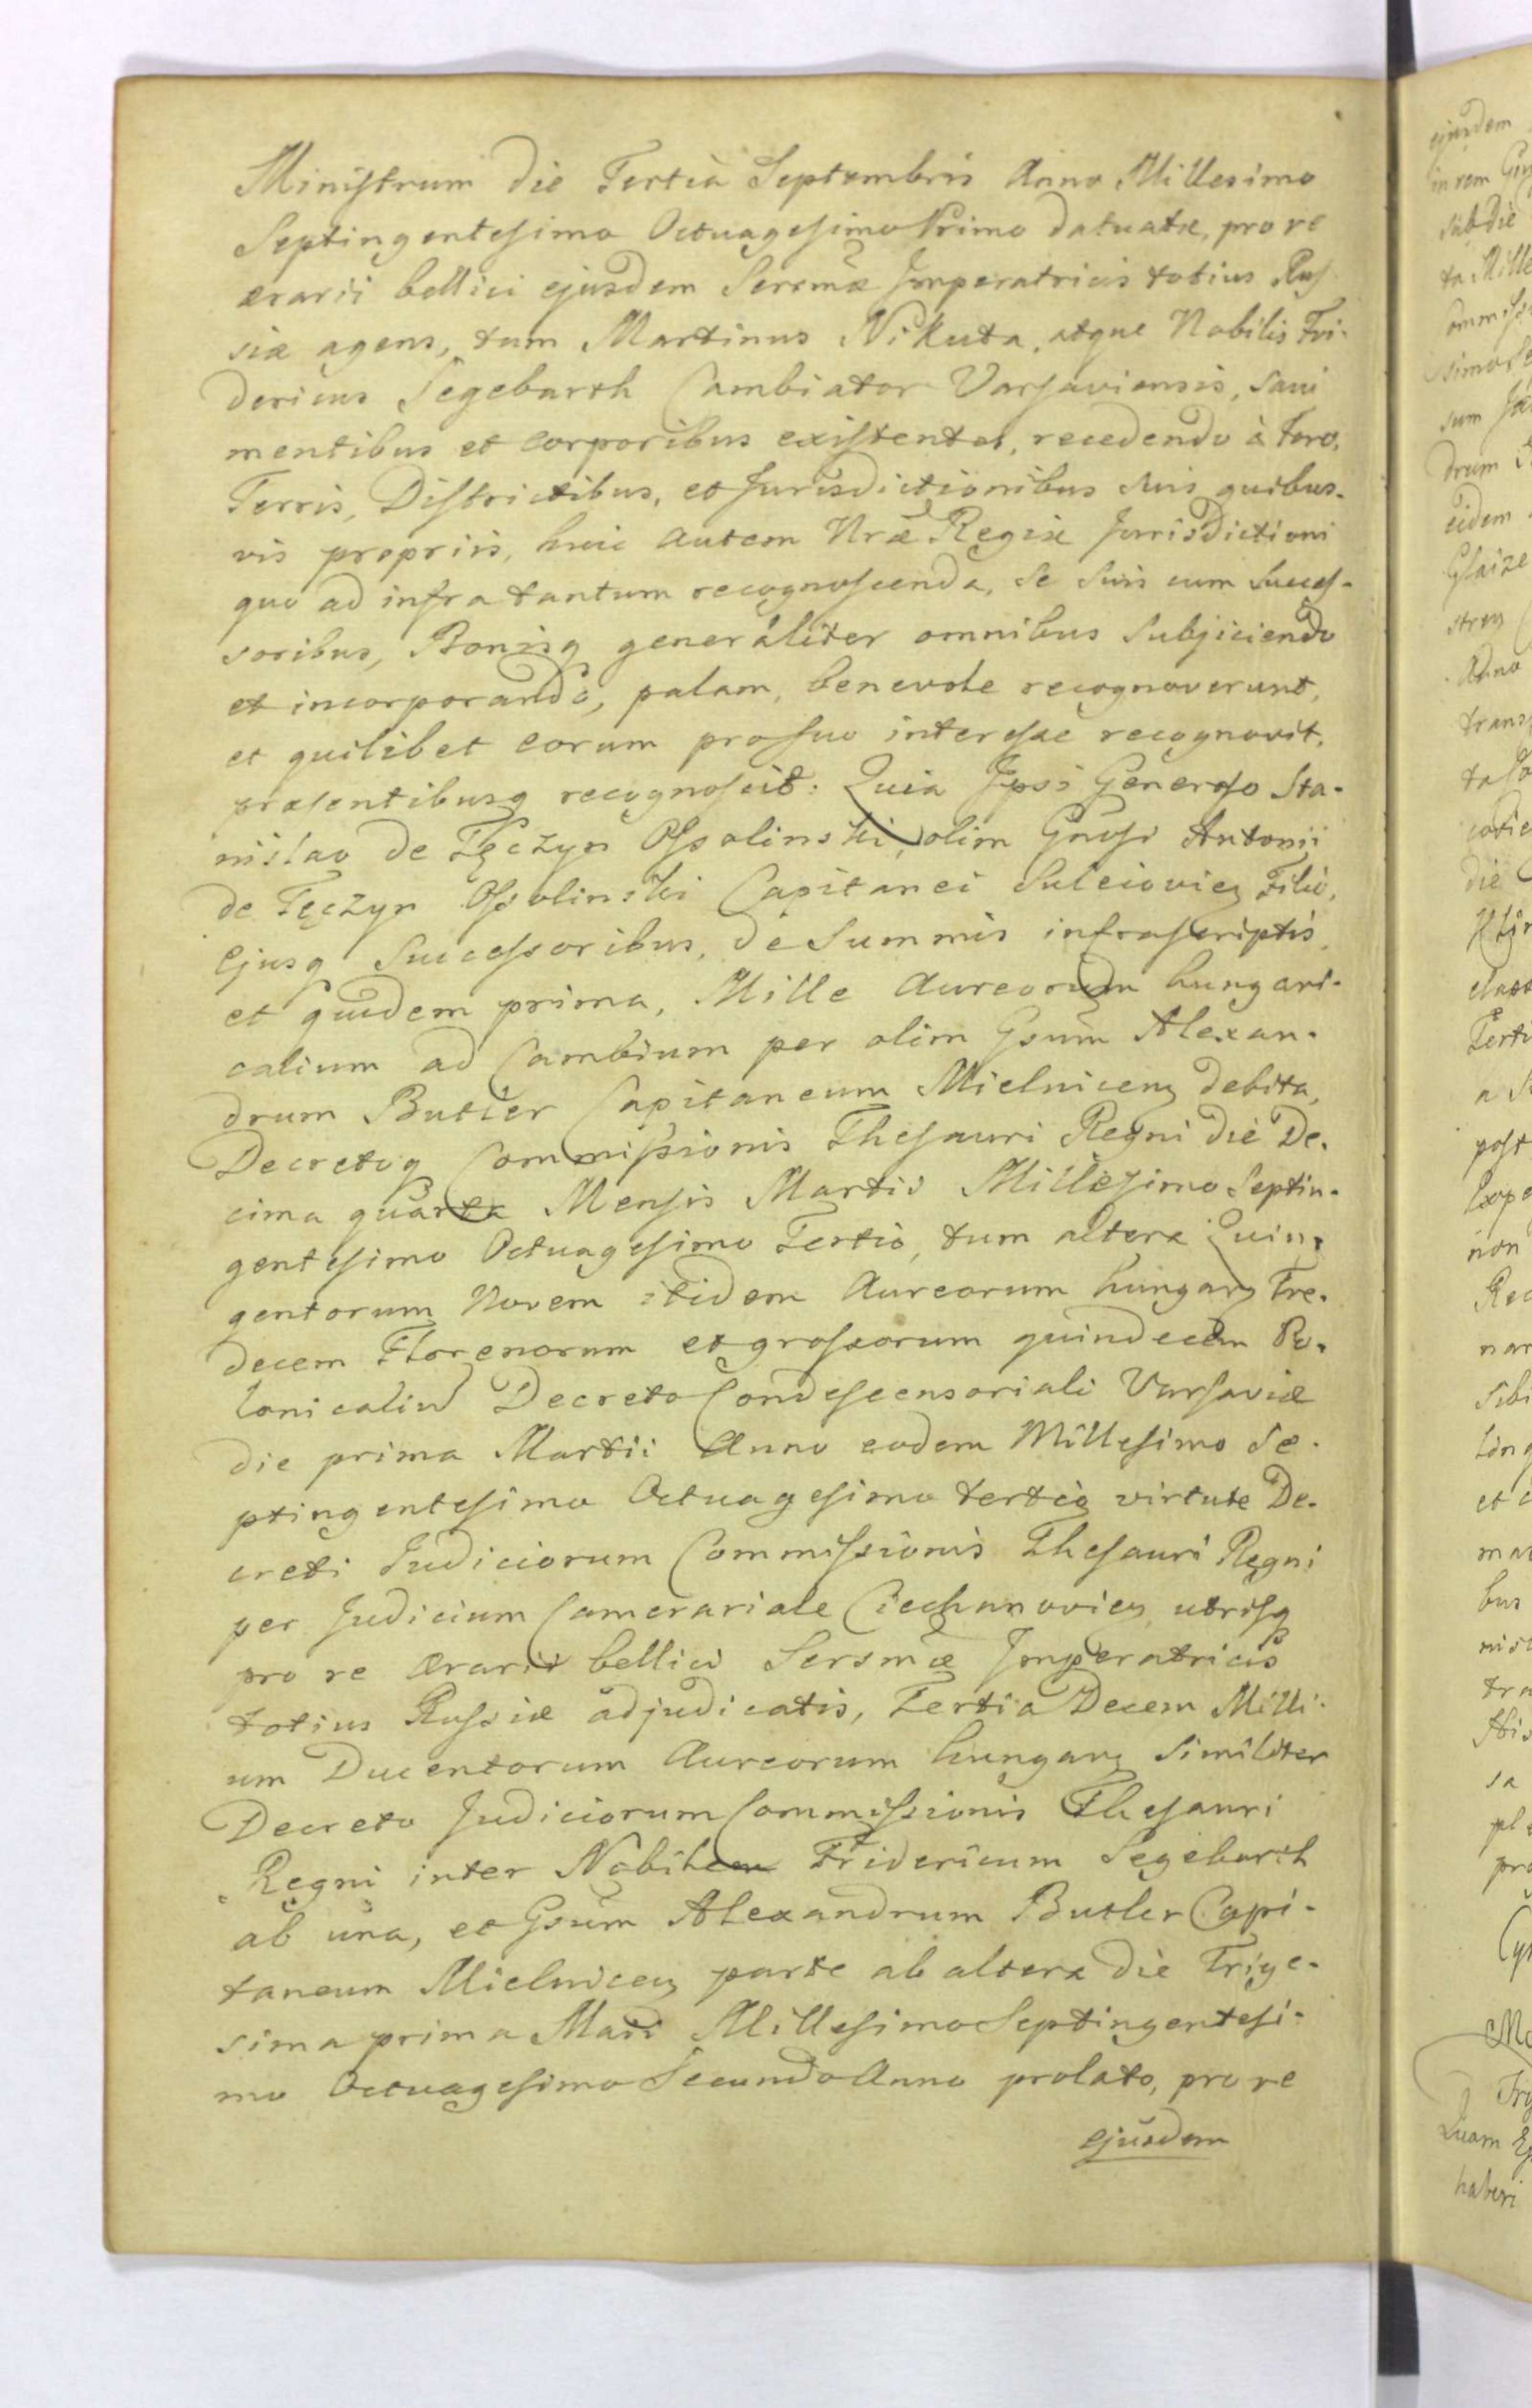 Ministrum die Tertia Septembris Anno Millesimo
Septingentesimo Octuagesimo Primo datuatæ, pro re
ærarii bellici ejusdem Serenmæ Imperatricis totius Rus
siæ agens, tum Martinus Nikuta, atque Nobilis Fri-
dericus Segebarth Cambiator Varsaviensis, sani
mentibus et corporibus existentes, recedendo à foro,
Terris, Districtibus, et Jurisdictionibus suis quibus-
vis propriis, huic autem Nræ Regiæ Jurisdictioni
quo ad infra tantum recognoscenda, se suis cum succes-
soribus, Bonisq generaliter omnibus subjiciendo
et incorporando, palam, benevole recognoverunt,
et quilibet eorum pro suo interesse recognovit,
præsentibusq recognoscit: Quia Ipsi Generoso Sta-
nislao de Tęczyn Ossolinski, olim Gnosi Antonii
de Tęczyn Ossolinski Capitanei Suleiovien Filio,
Ejusq Successoribus, de Summis infrascriptis,
et quidem prima, Mille Aureorum hungari-
calium ad Cambium per olim Gsum Alexan-
drum Butler Capitaneum Mielnicen debita,
Decretoq Commissionis Thesauri Regni die De-
cima quarta Mensis Martii Millesimo Septin-
gentesimo Octuagesimo Tertio, tum altera Quin-
gentorum Novem itidem Aureorum hungar Tre-
decem Florenorum et grossorum quindecem Po-
lonicaliu Decreto Condescensoriali Varsaviæ
die prima Martii Anno eodem Millesimo Se-
ptingentesimo Octuagesimo tertio virtute De-
creti Judiciorum Commissionis Thesauri Regni
per Judicium Camerariale Ciechanovien utrisq
pro re ærarii bellici Sersmæ Imperatricis
totius Russiæ adjudicatis, Tertia Decem Milli-
um Ducentorum Aureorum hungar Similiter
Decreto Judiciorum Commissionis Thesauri
Regni inter Nobilem Fridericum Segebarth
ab una, et Gsum Alexandrum Butler Capi-
taneum Mielnicen parte ab altera die Trige-
sima prima Maii Millesimo Septingentesi-
mo Octuagesimo Secundo Anno prolato, pro re
ejusdem